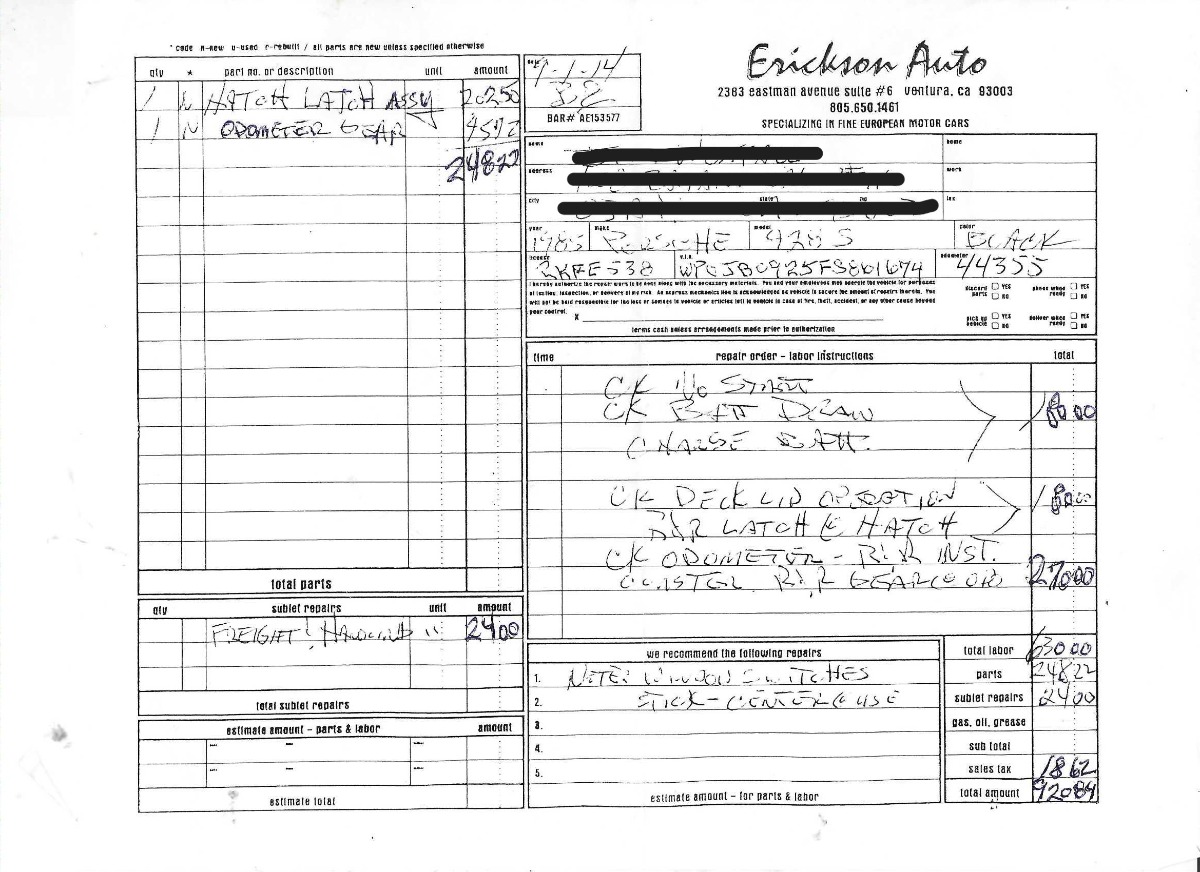 * code n-new u-used r-rebuilt / all parts are new unless specified otherwise
qty * part no. or description unit amount
1 N HATCH LATCH ASSY 202 50
1 N ODOMETER GEAR 45 72
248 22
total parts
qty sublet repairs unit amount
FREIGHT / HANDLING " 24 00
total sublet repairs
estimate amount - parts & labor amount
estimate total
date
-1-14
BAR# AE153577
Erickson Auto
2383 eastman avenue suite #6 ventura, ca 93003
805.650.1461
SPECIALIZING IN FINE EUROPEAN MOTOR CARS
name home
address work
city state zip fax
year make model color
1985 PORSCHE 928 S BLACK
license v.i.n. odometer
2KFE538 WP0JB0925FS861674 44355
I hereby authorize the repair work to be done along with the necessary materials. You and your employees may operate the vehicle for purposes
of testing, inspection, or delivery at my risk. An express mechanics lien is acknowledged on vehicle to secure the amount of repairs thereto. You
will not be held responsible for the loss or damage to vehicle or articles left in vehicle in case of fire, theft, accident, or any other cause beyond
your control.
X
terms cash unless arrangements made prior to authorization
discard parts YES NO
phone when ready YES NO
pick up vehicle YES NO
deliver when ready YES NO
time repair order - labor instructions total
CK NO START
CK BATT DRAW 180 00
CHARGE BATT.
CK DECK LID OPERATION 180 00
R&R LATCH @ HATCH
CK ODOMETER - R&R INST.
CLUSTER R&R GEAR 270 00
we recommend the following repairs
1. NOTE: WINDOW SWITCHES
2. STICK - CENTER @ USE
3.
4.
5.
estimate amount - for parts & labor
total labor 630 00
parts 248 22
sublet repairs 24 00
gas, oil, grease
sub total
sales tax 18 62
total amount 920 84